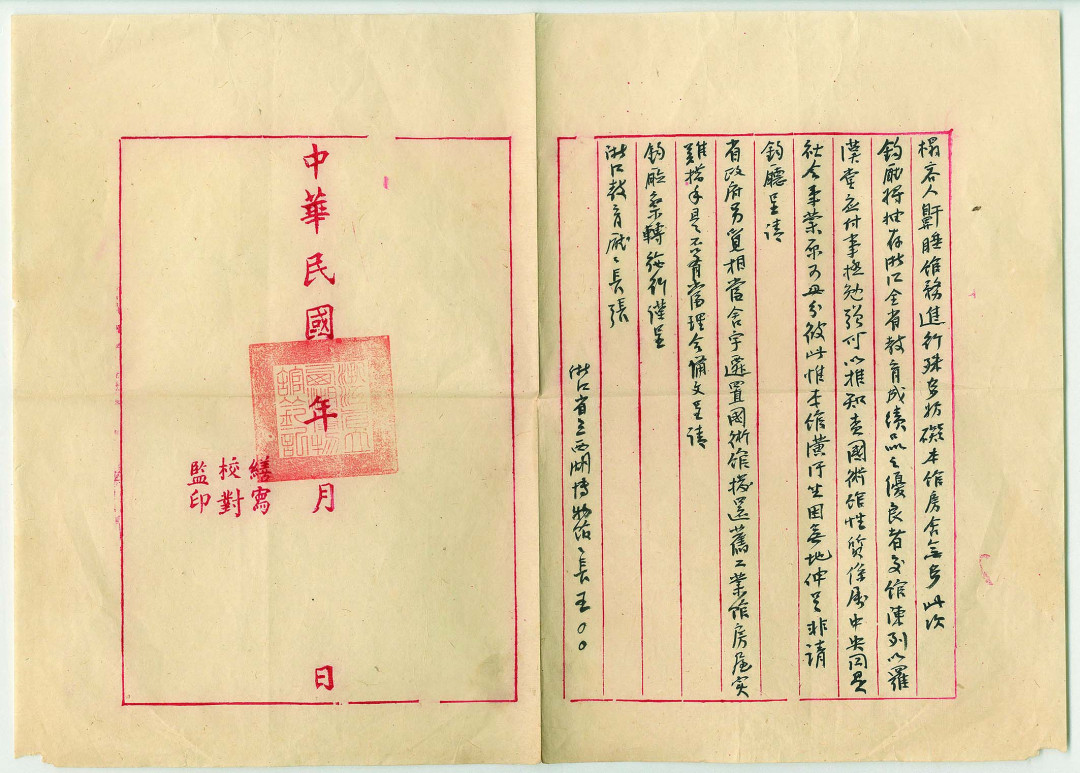 榻客人鼾睡館務進行殊多妨礙本館房舍無多此次
鈞廳將抽存浙江全省教育成績品之優良者交館陳列以羅
漢堂应付事極勉强可以推知查國術館性質係屬中央同是
社会事業原可毋分彼此惟本館廣厅生困無地伸足非請
鈞廳呈請
省政府另覓相當舍宇遷置國術館撥還舊工業館房屋实
難措手是否有當理合俻文呈請
鈞廳鑒轉施行謹呈
浙江教育廳廳長張
浙江省立西湖博物館館長王〇〇
中華民國 年 月 日
繕寫
校對
監印
浙江省立西湖博物館鈐記